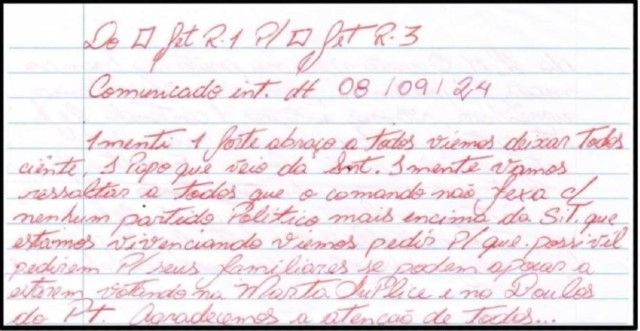 Do □ Jet R.1 P/ □ Jet R.3
Comunicado int. dt 08/09/24
1menti 1 forte abraço a Todos viemos deixar Todos
ciente, 1 Papo que veio da Snt. 1mente vamos
ressaltar a todos que o comando não fexa c/
nenhum partido Politico mais encima da S.T. que
estamos vivenciando viemos pedir P/ que possivil
pedirem P/ seus familiares se podem apoiar a
esterem votando na Marta SuPlice e no Boulos
do Pt. Agradecemos a atencão de Todos...